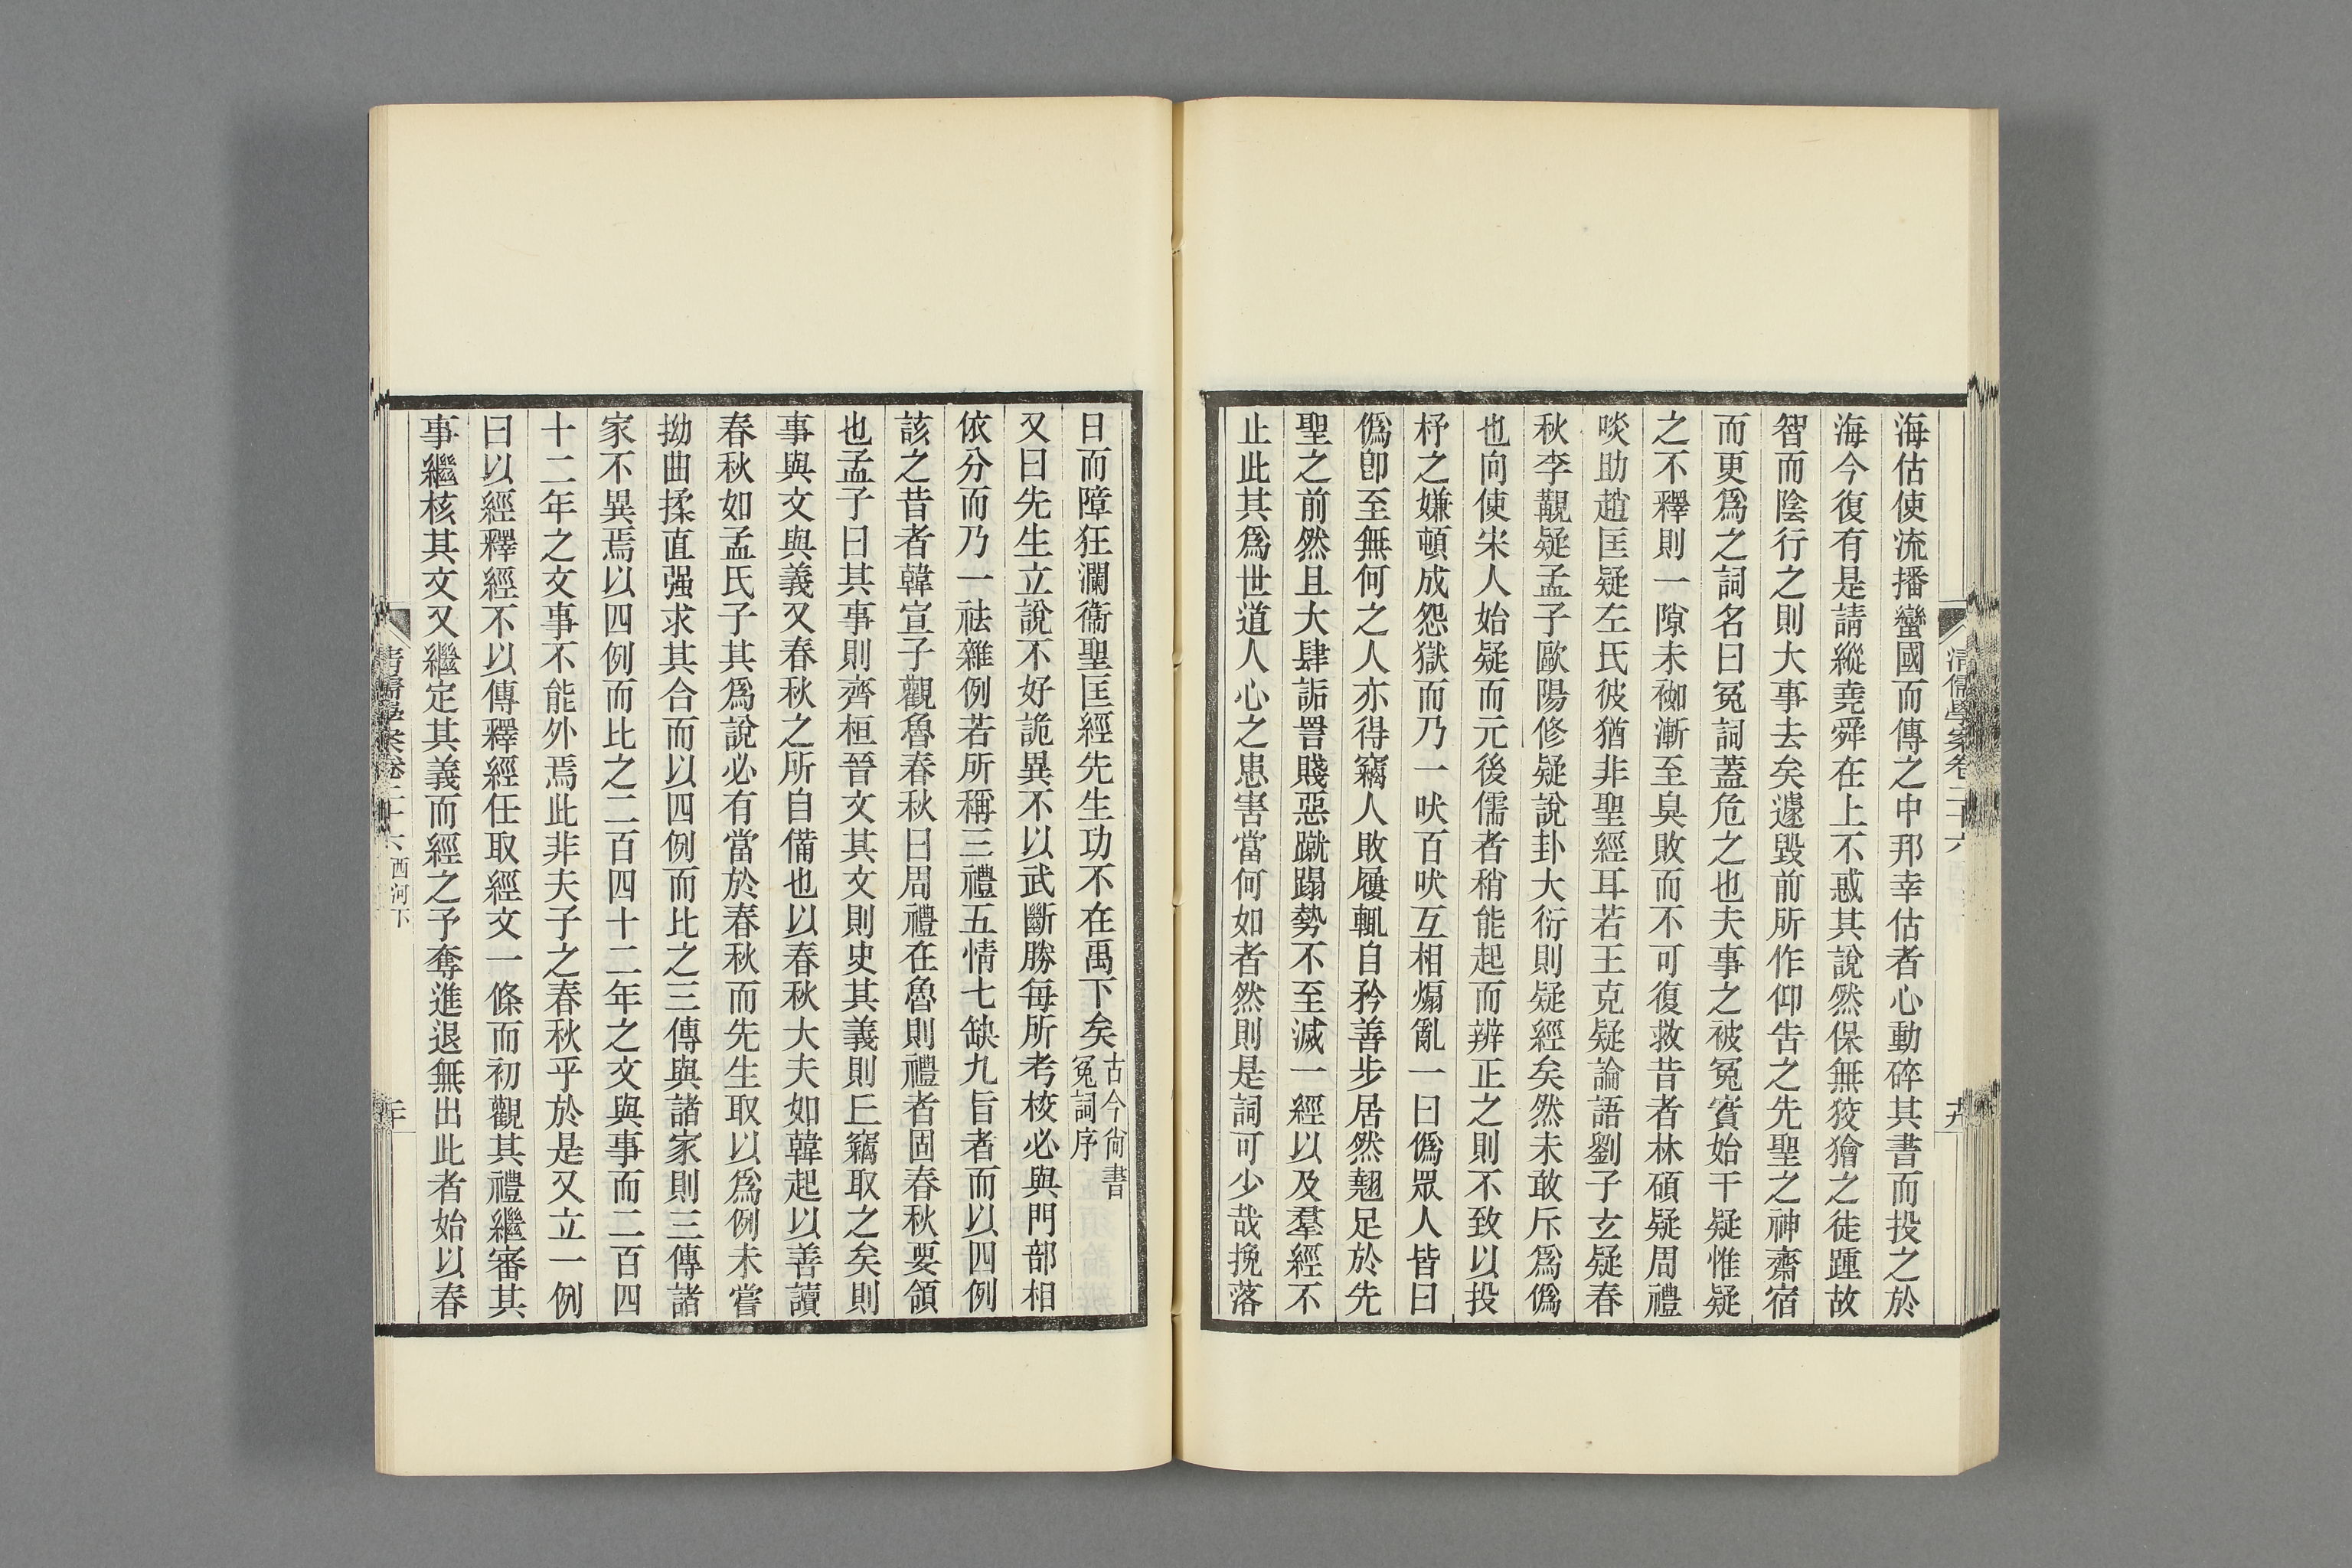 海估使流播蠻國而傳之中邦幸估者心動碎其書而投之於
海今復有是請縱堯舜在上不惑其說然保無狡獪之徒踵故
智而陰行之則大事去矣遽毀前所作仰告之先聖之神齋宿
而更爲之詞名曰冤詞蓋危之也夫事之被冤實始于疑惟疑
之不釋則一隙未衪漸至臭敗而不可復救昔者林碩疑周禮
啖助趙匡疑左氏彼猶非聖經耳若王克疑論語劉子玄疑春
秋李覯疑孟子歐陽修疑說卦大衍則疑經矣然未敢斥爲僞
也向使宋人始疑而元後儒者稍能起而辨正之則不致以投
杼之嫌頓成怨獄而乃一吠百吠互相煽亂一曰僞眾人皆曰
僞卽至無何之人亦得竊人敗屨輒自矜善步居然翹足於先
聖之前然且大肆詬詈賤惡蹴蹋勢不至滅一經以及羣經不
止此其爲世道人心之患害當何如者然則是詞可少哉挽落
清儒學案卷二十六
十九
日而障狂瀾衞聖匡經先生功不在禹下矣古今尙書冤詞序
又曰先生立說不好詭異不以武斷勝每所考校必與門部相
依分而乃一祛雜例若所稱三禮五情七缺九旨者而以四例
該之昔者韓宣子觀魯春秋曰周禮在魯則禮者固春秋要領
也孟子曰其事則齊桓晉文其文則史其義則丘竊取之矣則
事與文與義又春秋之所自備也以春秋大夫如韓起以善讀
春秋如孟氏子其爲說必有當於春秋而先生取以爲例未嘗
拗曲揉直强求其合而以四例而比之三傳與諸家則三傳諸
家不異焉以四例而比之二百四十二年之文與事而二百四
十二年之文事不能外焉此非夫子之春秋乎於是又立一例
曰以經釋經不以傳釋經任取經文一條而初觀其禮繼審其
事繼核其文又繼定其義而經之予奪進退無出此者始以春
清儒學案卷二十六 西河下
二十